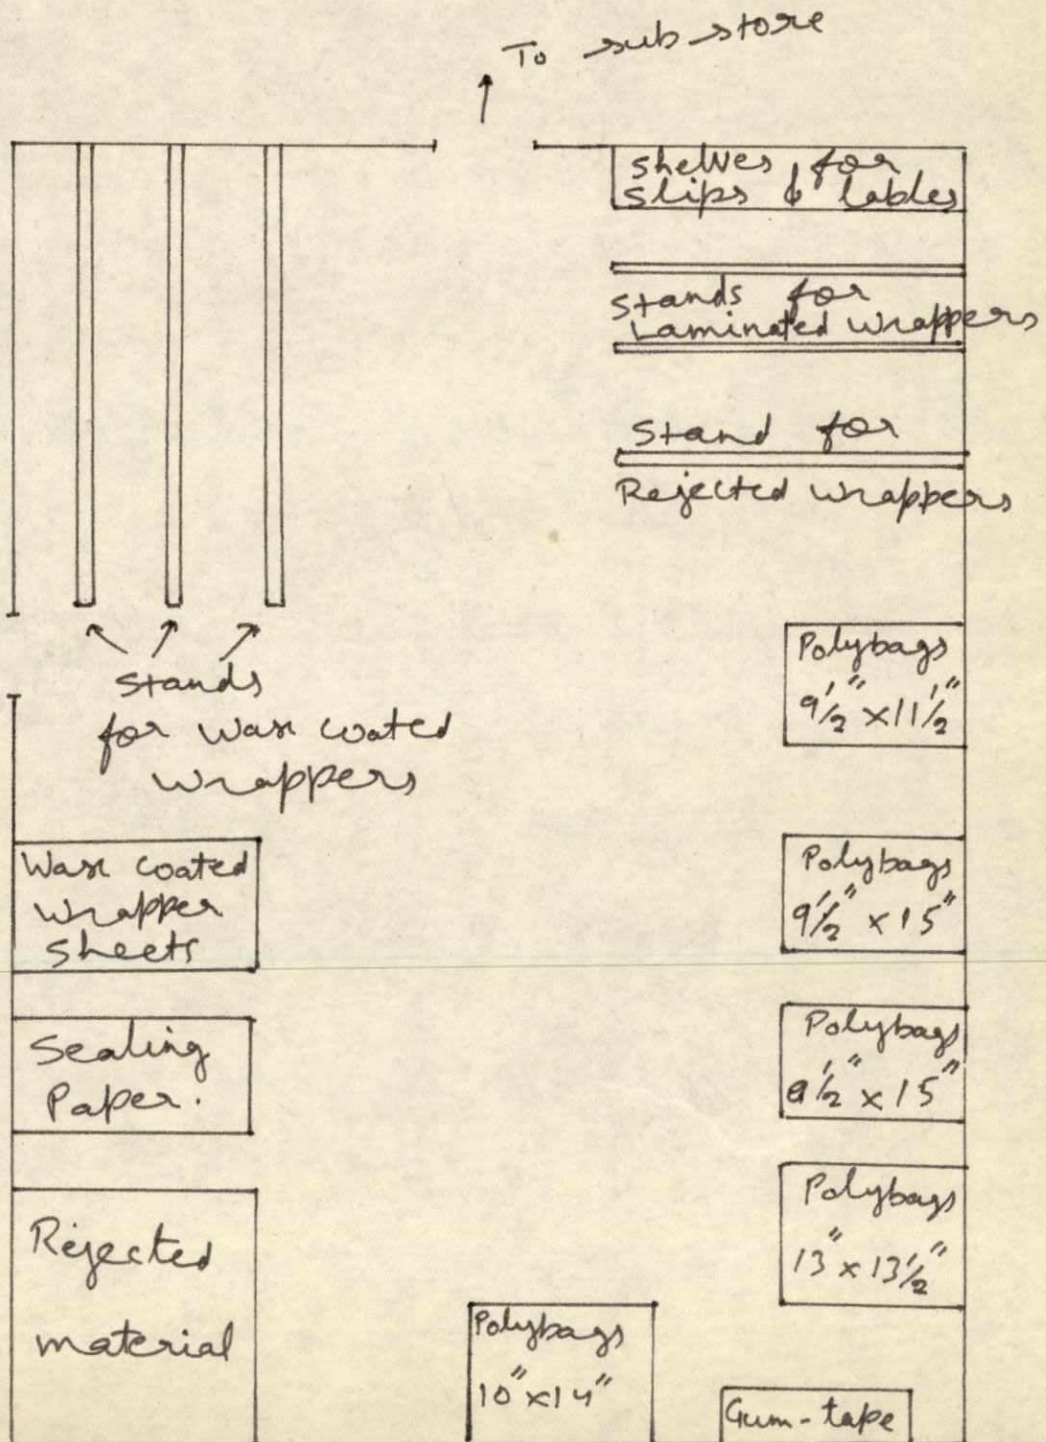 To sub store
shelves for
slips & lables
Stands for
Laminated Wrappers
Stand for
Rejected Wrappers
Stands
for Wax coated
wrappers
Polybags
9 1/2" x 11 1/2"
Wax coated
Wrapper
Sheets
Polybags
9 1/2" x 15"
Sealing
Paper.
Polybags
x 15"
Rejected
material
Polybags
13" x 13 1/2"
Polybags
10" x 14"
Gum-tape